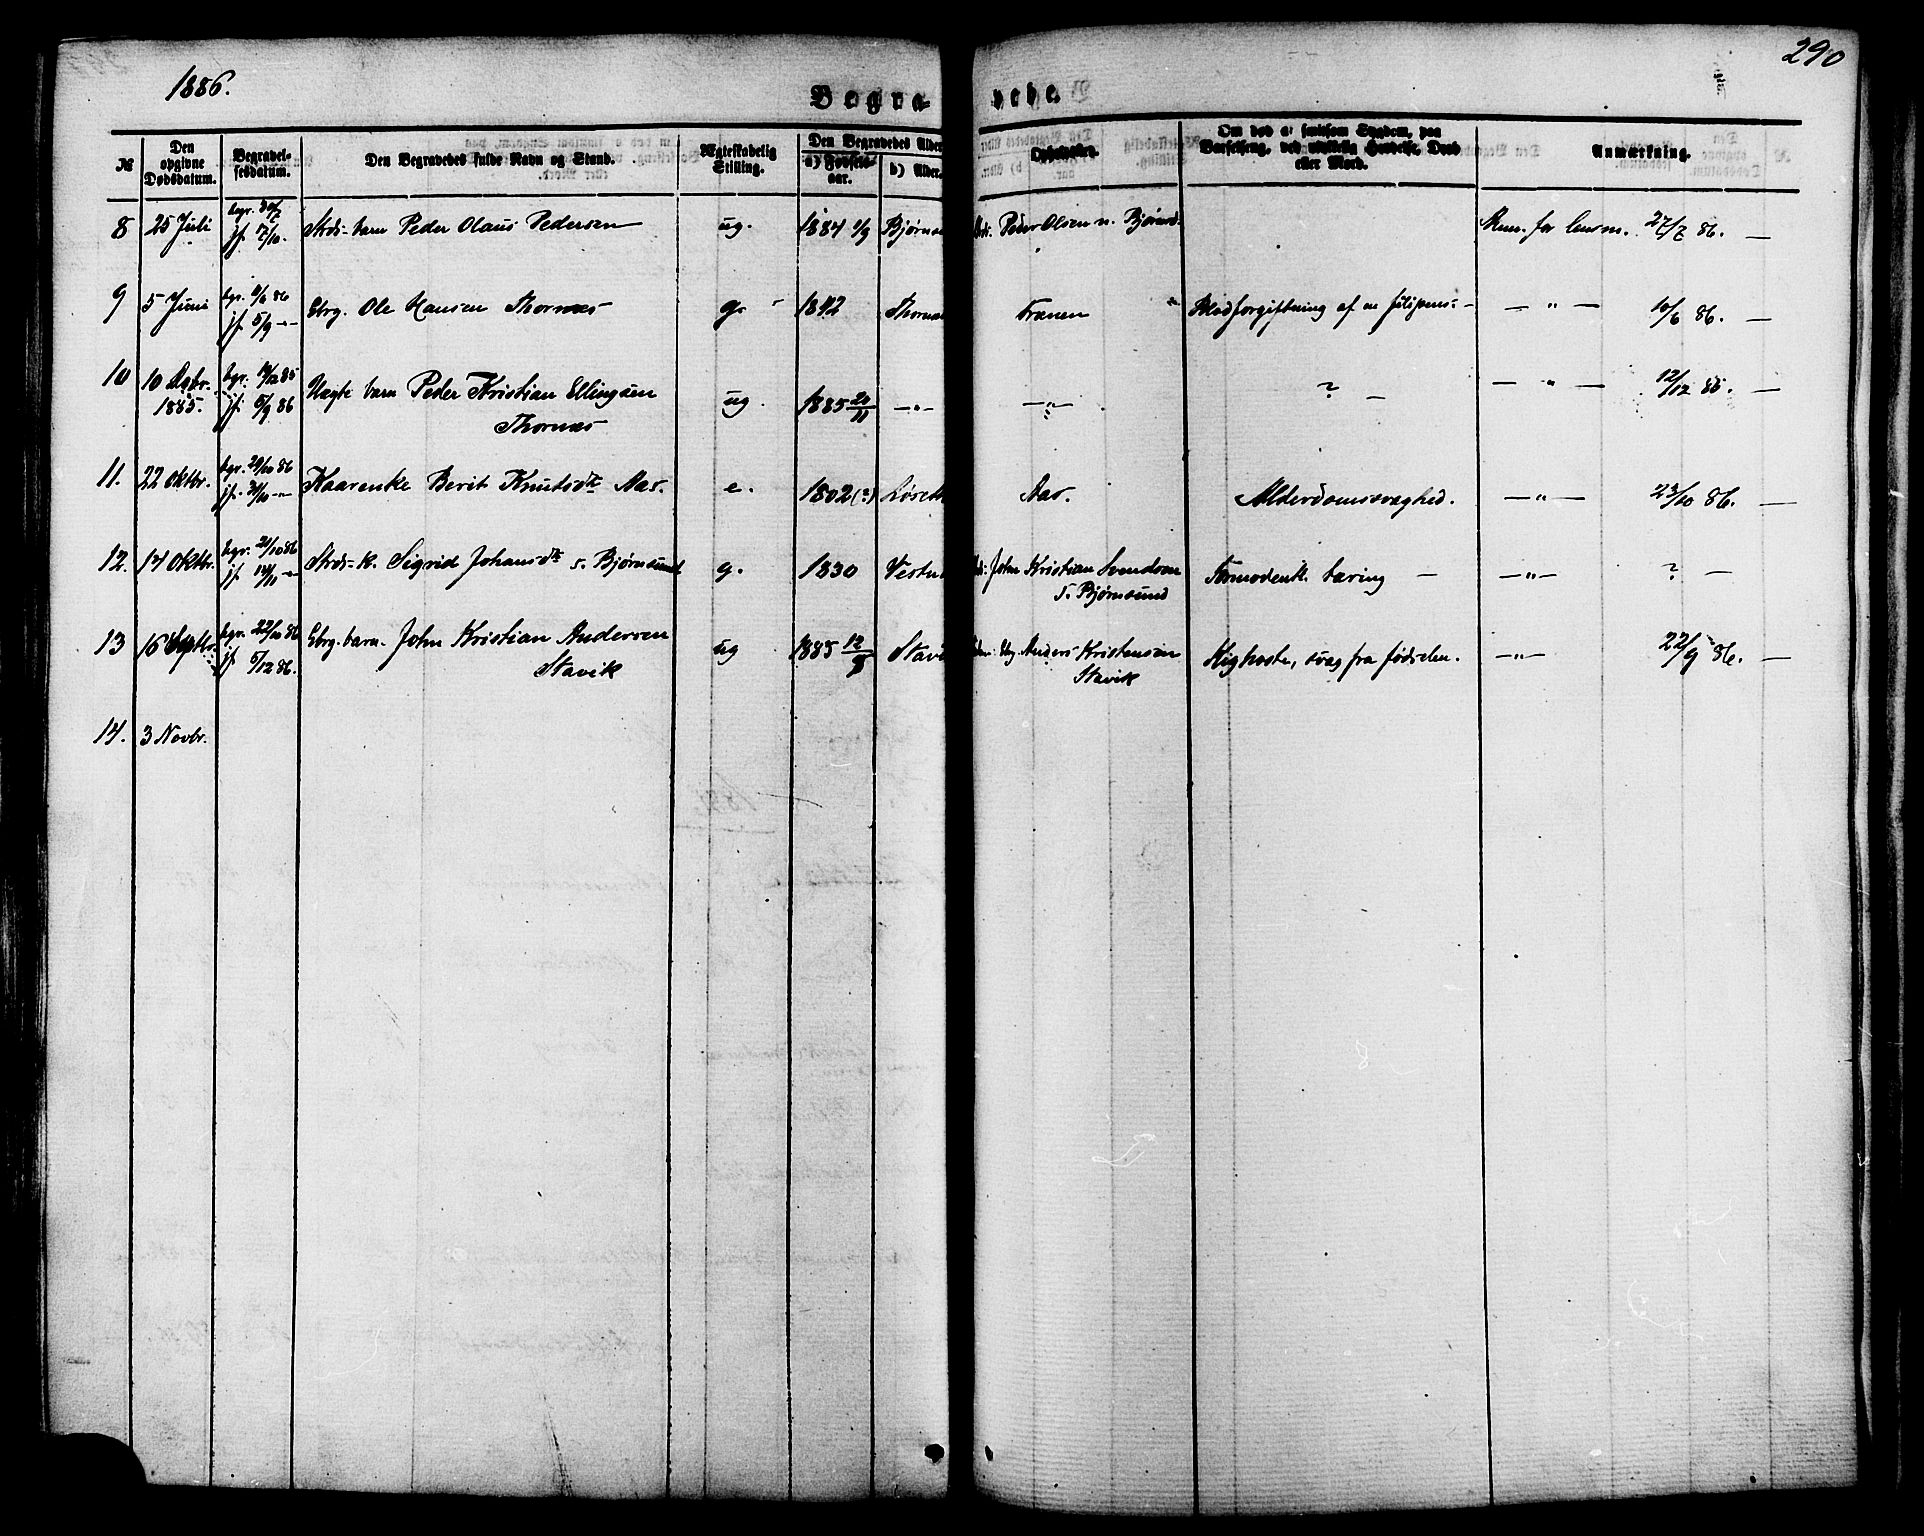 1886.
290
Begra- vede.
№
Den opgivne Dødsdatum.
Begravelsesdatum.
Den Begravedes fulde Navn og Stand.
Ægteskabelig Stilling.
Den Begravedes Alder
a) Fødselsaar.
b) Alder.
Opholdssted.
Om død af smitsom Sygdom, paa Barselseng, ved ulykkelig Hændelse, Drab eller Mord.
Anmærkning.
8 25 Juli begr. 30/7 jf. 17/10. Strds-barn Peder Olaus Pedersen ug. 1884 1/9 Bjørns Peder Olsen n. Bjørnsd. Anm. for lensm. 27/7 86. —
9 5 Juni jf. 5/9 -"- Gbrg. Ole Hansen Thornæs g. 1842 Thornæs Frænen Blodforgiftning af en — " — 10/6 86. —
10 10 Dcbr. begr. 19/12 85 Nægte barn Peder Kristian Ellingsen ug. 1885 20/11 -"- -"- ? — — " — 12/12 85. —
1885. jf. 5/9 86 Thornæs
11. 22 Oktbr. begr. 29/10 86 jf. 31/10 -"- Kaarenke Berit Knutsdtr Aas. e. 1802 (?) Løseth Aas. Alderdomssvaghed. — " — 23/10 86. —
12. 14 Oktbr. begr. 21/10 86 jf. 14/11 -"- Strds-k. Sigrid Johansdtr s. Bjørnsund g. 1830 Vestn John Kristian Svendsen Formodentl. tæring — — " — ? —
s. Bjørnsund
13 16 Septbr. begr. 22/10 86 Gbrg. barn. John Kristian Andersen ug 1885 12/8 Stavi Gbrg. Anders Kristensen Kighoste, svag fra fødselen. — " — 22/9 86. —
jf. 5/12 86. Stavik Stavik
14. 3 Novbr.